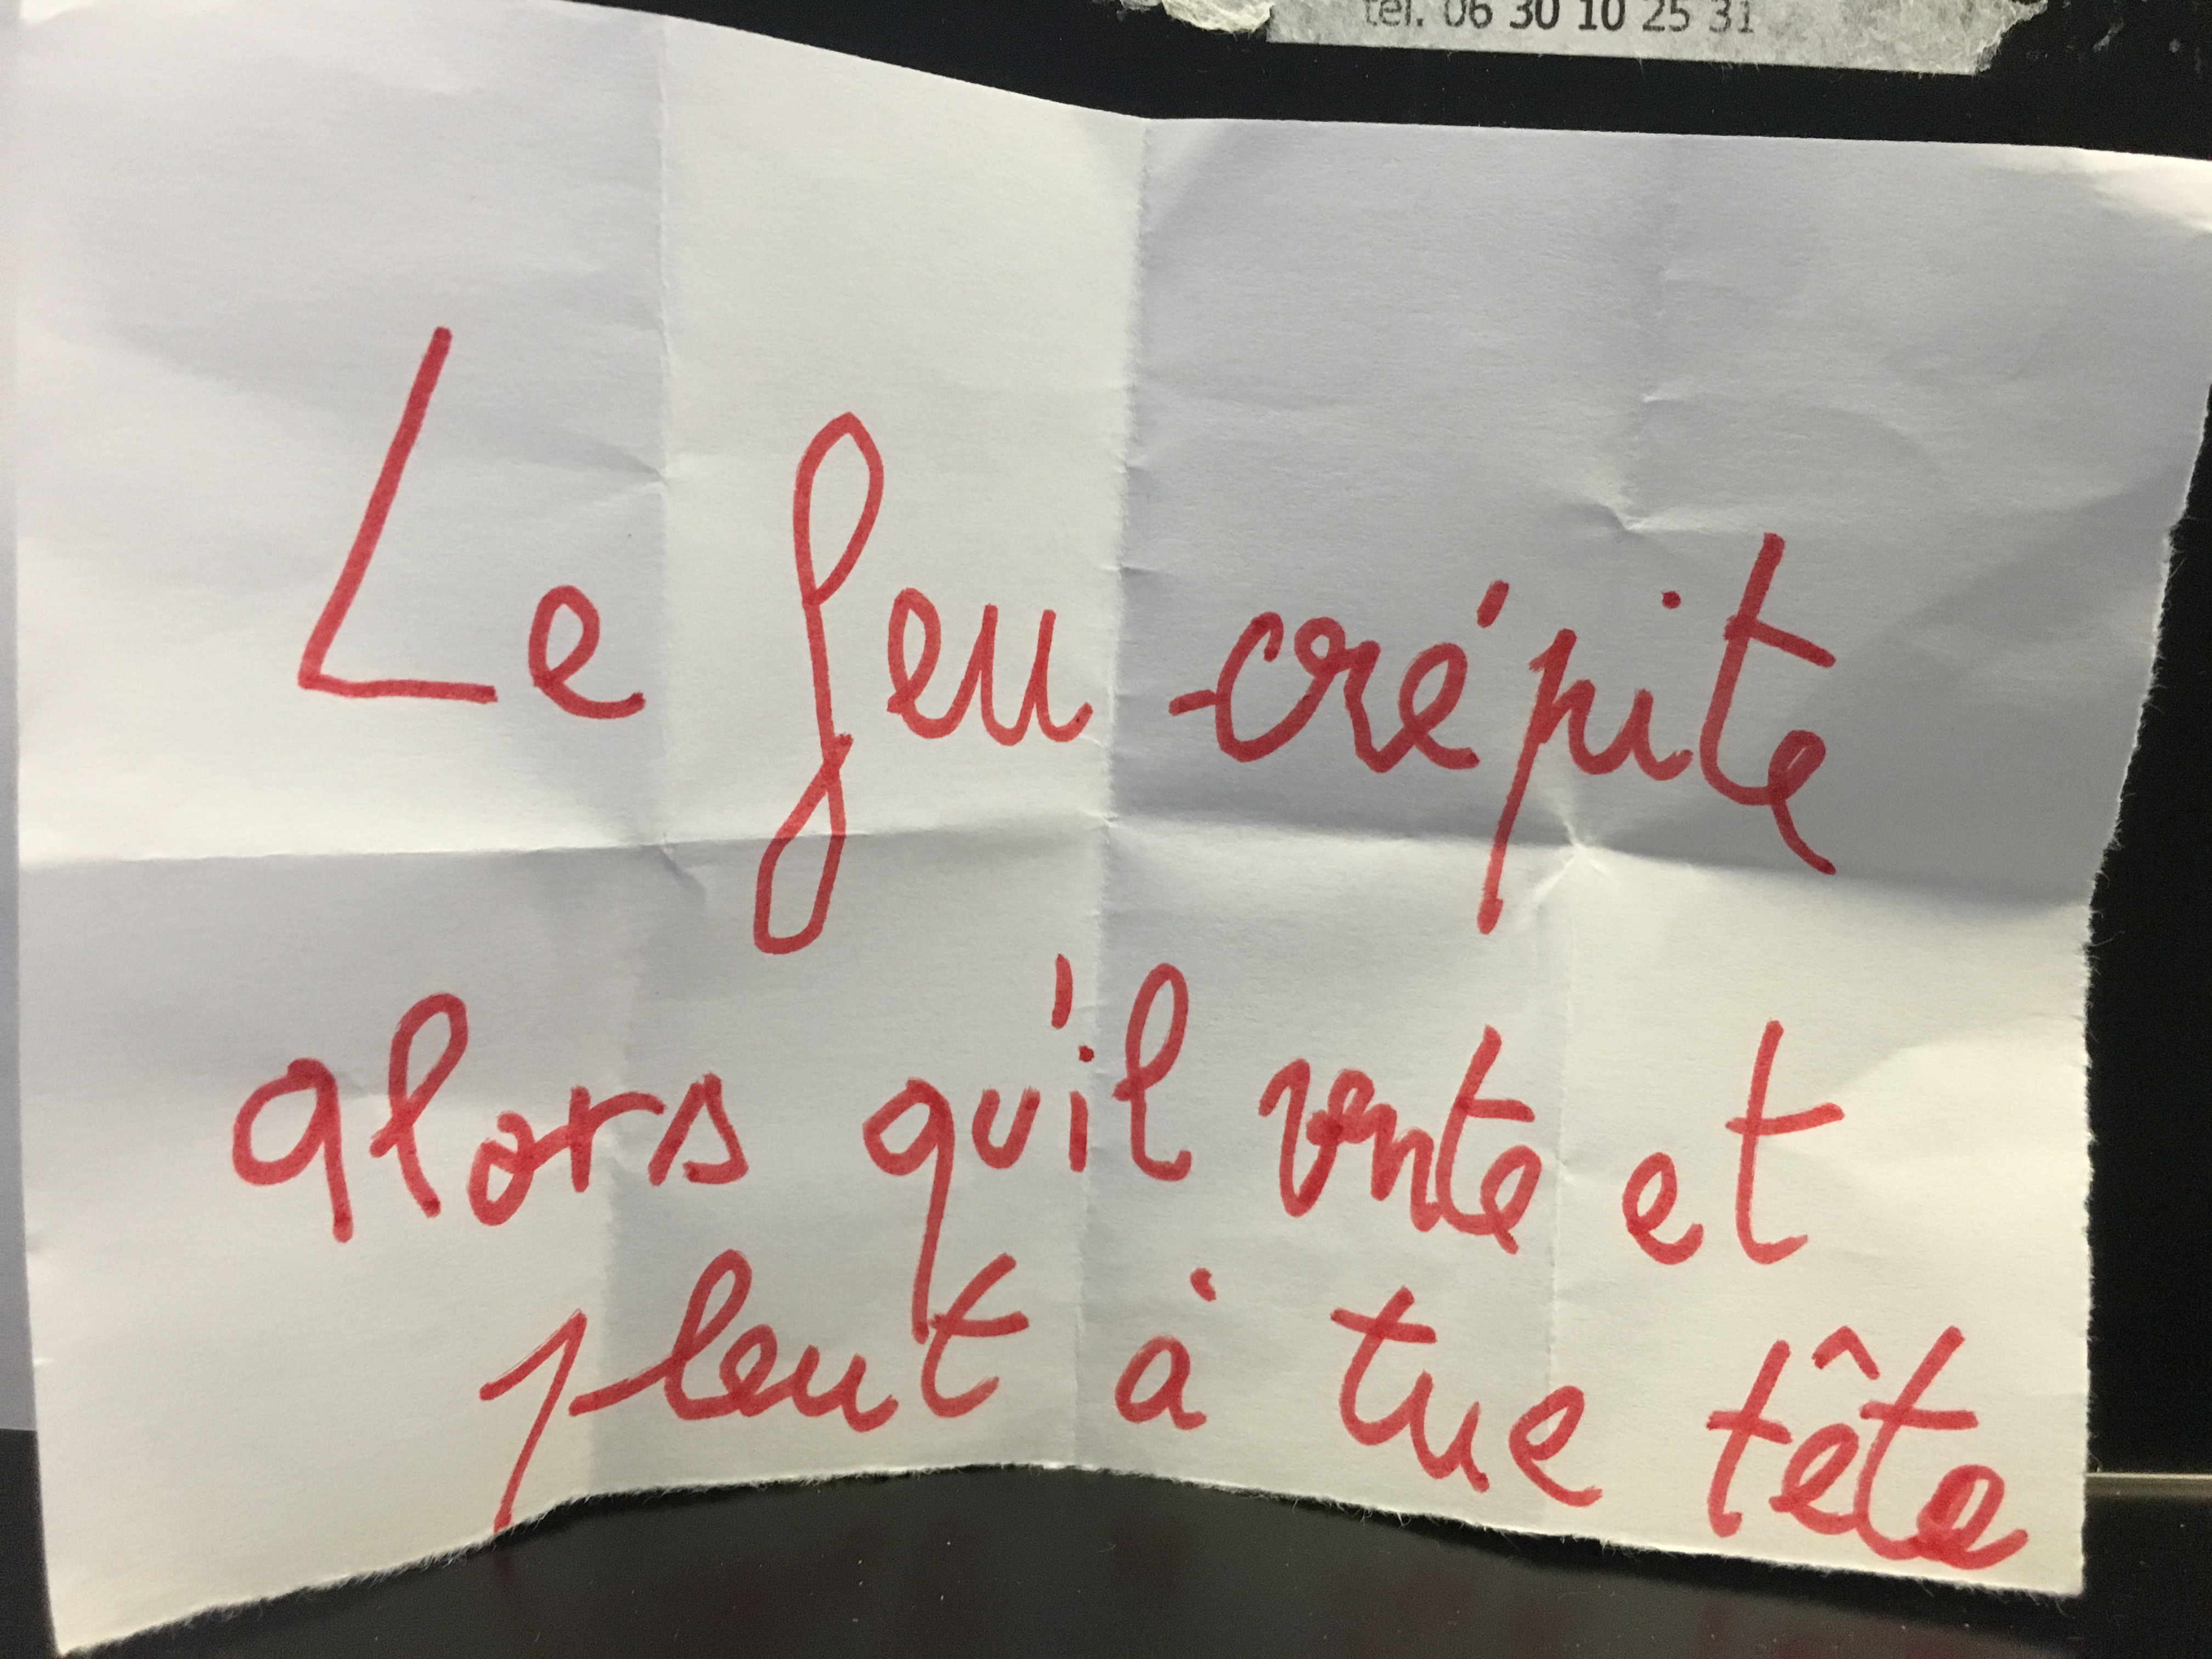 tel. 06 30 10 25 31
Le feu crépite
alors qu'il vente et
pleut à tue tête